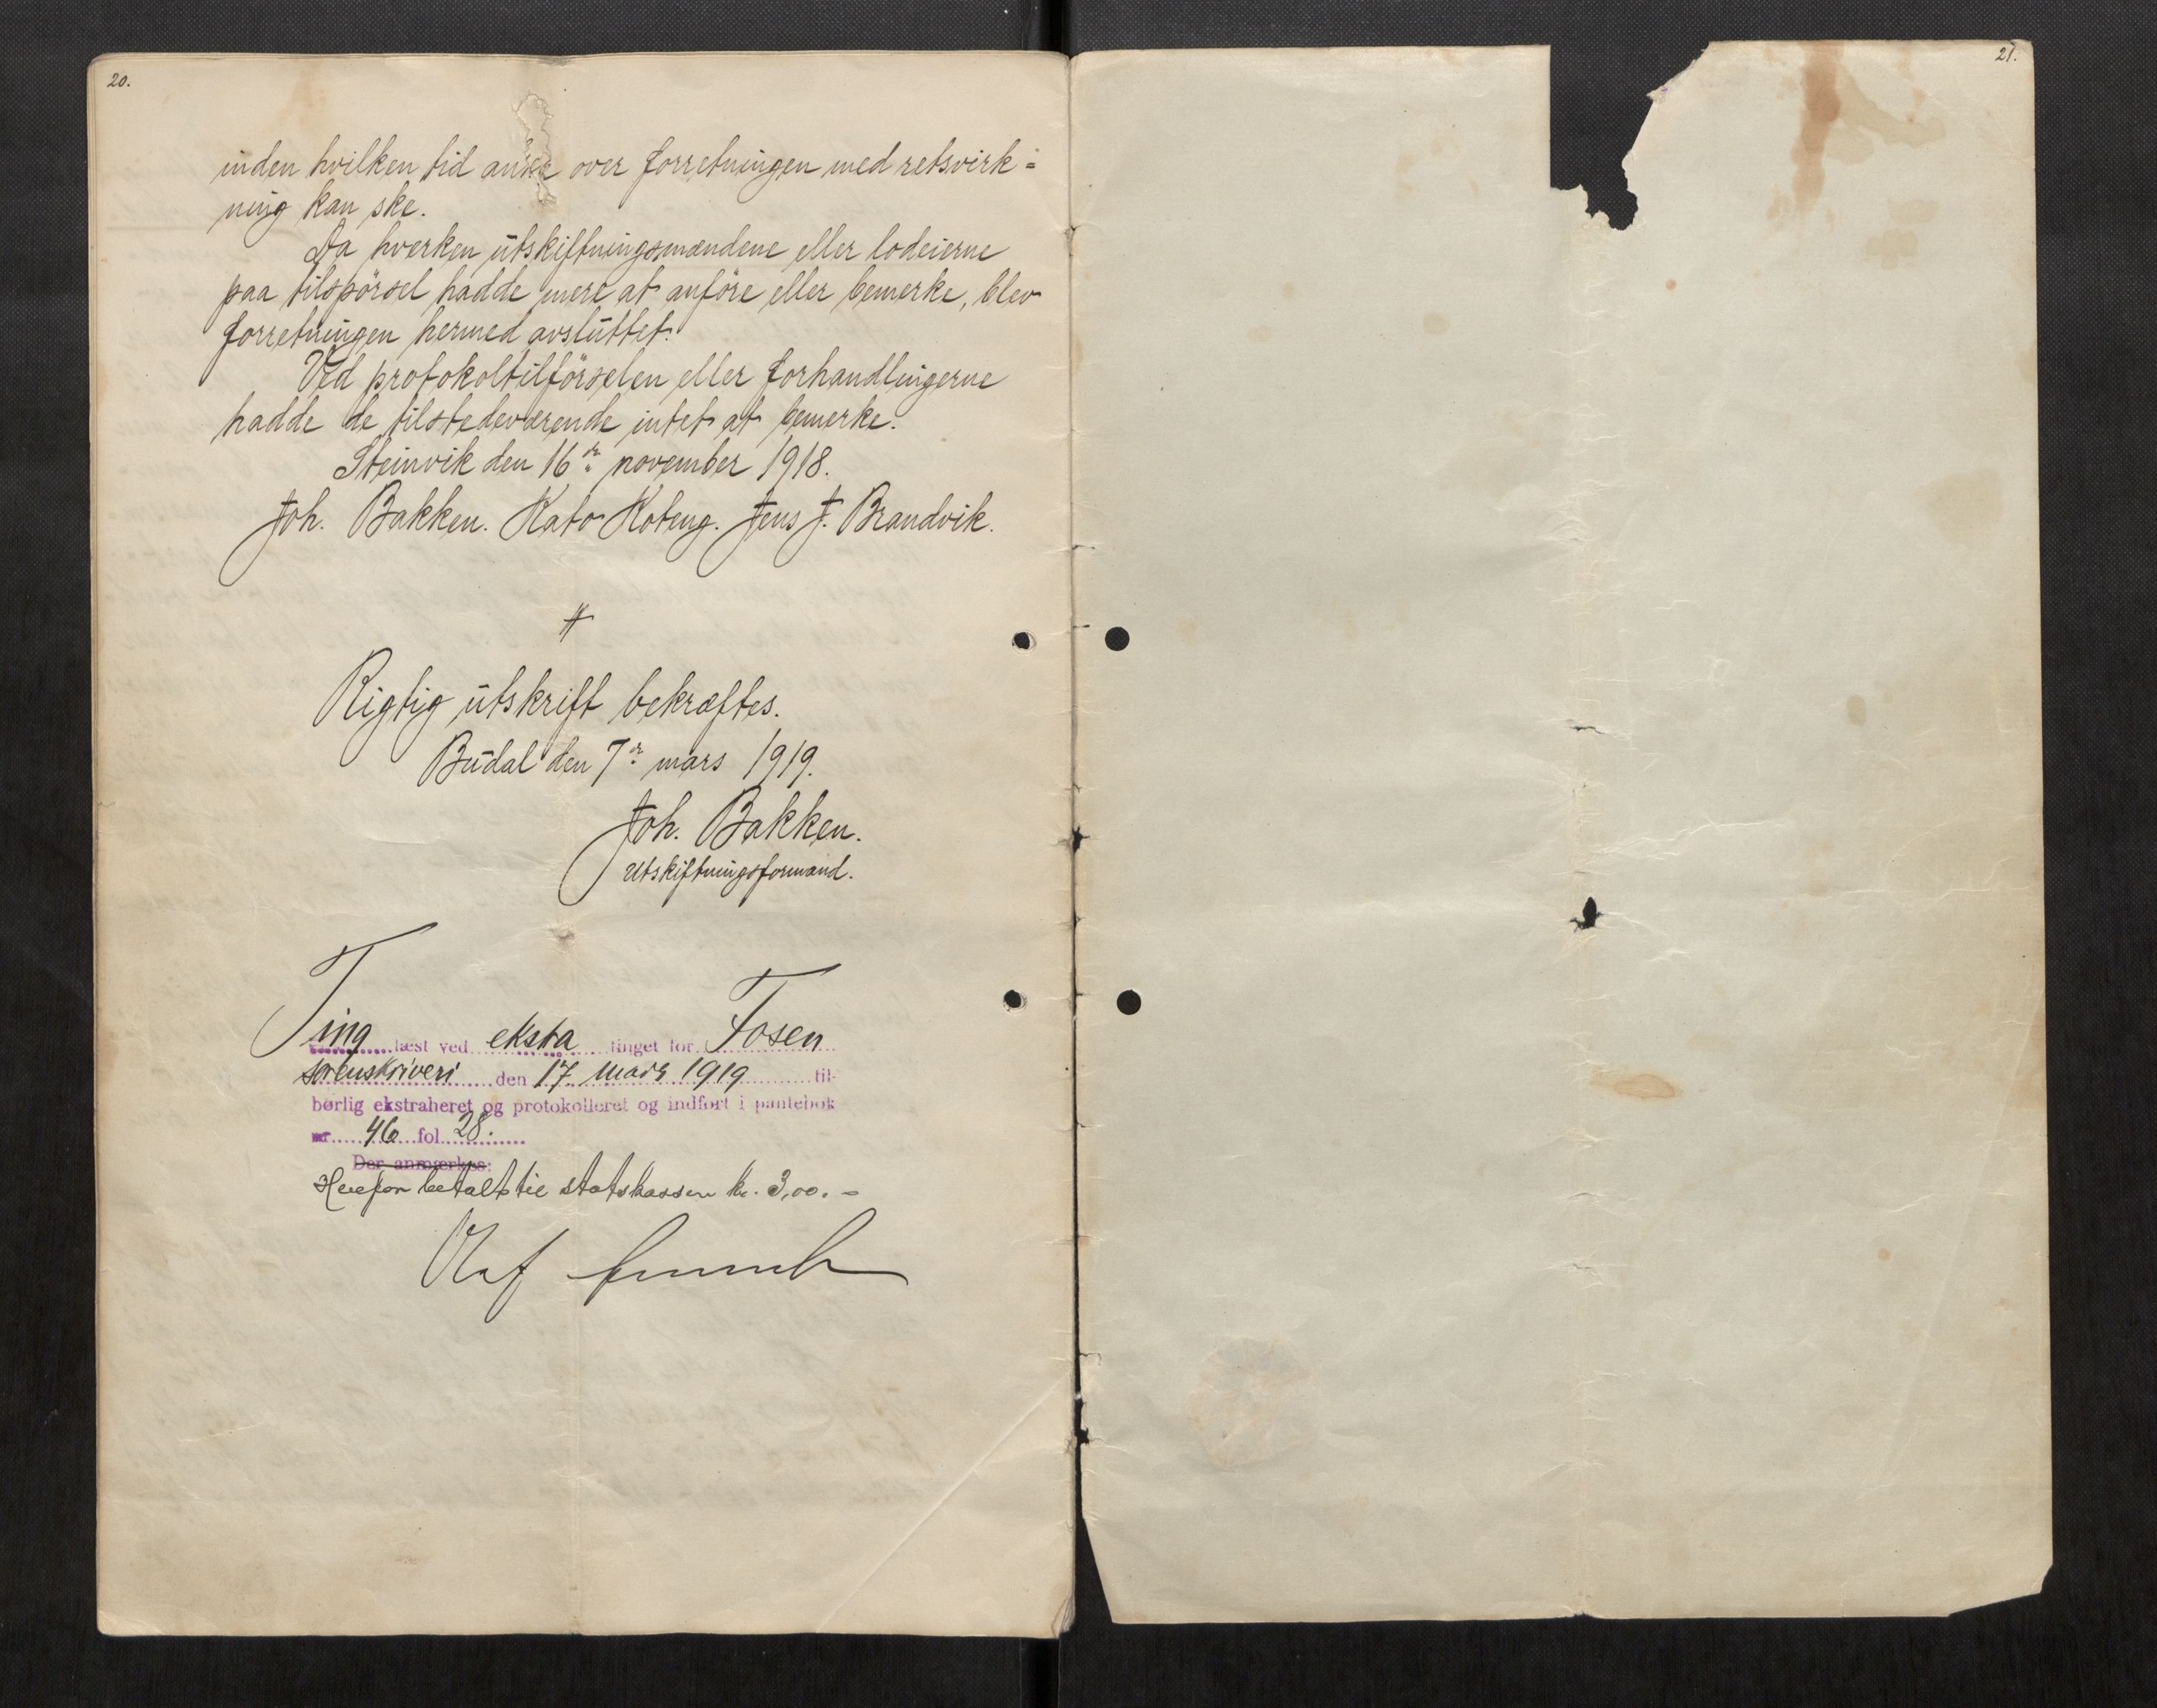 20.
inden hvilken tid anke over forretningen med retsvirk=
ning kan ske.
Da hverken utskiftningsmændene eller lodeierne
paa tilspörsel hadde mere at anföre eller bemerke, blev
forretningen hermed avsluttet.
Ved protokoltilförselen eller forhandlingerne
hadde de tilstedeværende intet at bemerke.
Steinvik den 16de november 1918.
Joh. Bakken. Kato Koteng. Jens J. Brandvik.
Rigtig utskrift bekræftes.
Budal den 7de mars 1919.
Joh. Bakken.
Utskiftningsformand.
Ting læst ved eksta tinget for Fosen
sorenskriveri den 17 mars 1919 til-
børlig ekstraheret og protokolleret og indført i pantebok
nr 46 fol 28.
Der anmærkes:
Herfor betalt til statskassen kr. 3,00. -
Olaf
21.